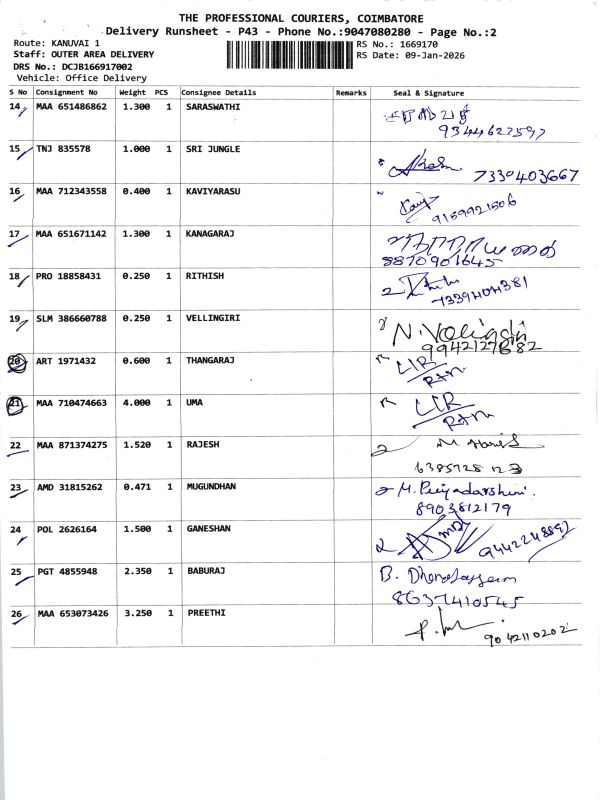 THE PROFESSIONAL COURIERS, COIMBATORE
Delivery Runsheet - P43 - Phone No.:9047080280 - Page No.:2
Route: KANUVAI 1
RS No.: 1669170
Staff: OUTER AREA DELIVERY
RS Date: 09-Jan-2026
DRS No.: DCJB166917002
Vehicle: Office Delivery
S No Consignment No Weight PCS Consignee Details Remarks Seal & Signature
14 MAA 651486862 1.300 1 SARASWATHI
9344622597
15 TNJ 835578 1.000 1 SRI JUNGLE 7330403667
16 MAA 712343558 0.400 1 KAVIYARASU
9159921506
17 MAA 651671142 1.300 1 KANAGARAJ
8870901645
18 PRO 18858431 0.250 1 RITHISH
7339404381
19 SLM 386660788 0.250 1 VELLINGIRI
9942127682
20 ART 1971432 0.600 1 THANGARAJ
21 MAA 710474663 4.000 1 UMA
22 MAA 871374275 1.520 1 RAJESH
23 AMD 31815262 0.471 1 MUGUNDHAN M. Priyadarshini.
8903812179
24 POL 2626164 1.500 1 GANESHAN
9442248892
25 PGT 4855948 2.350 1 BABURAJ B.
8637410545
26 MAA 653073426 3.250 1 PREETHI
9042110202